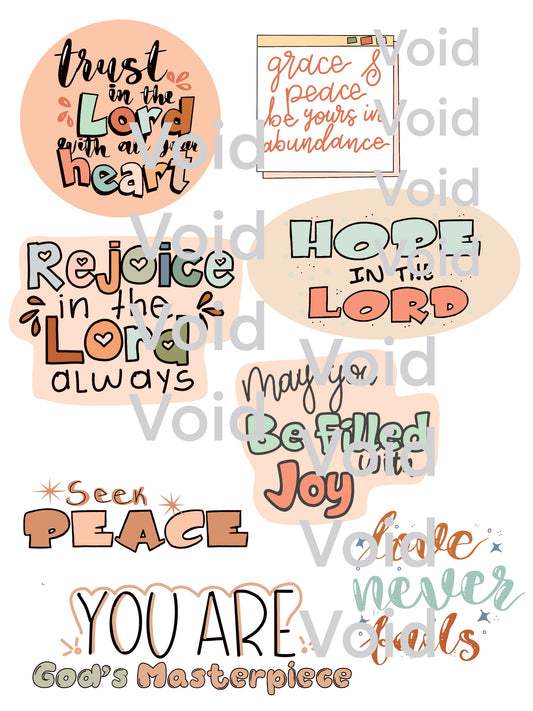 trust
in the
Lord
with all your
heart
grace &
peace
be yours in
abundance
Rejoice
in the
Lord
always
HOPE
IN THE
LORD
May you
Be filled
with
Joy
Seek
PEACE
love
never
fails
YOU ARE
God's Masterpiece
Void
Void
Void
Void
Void
Void
Void
Void
Void
Void
Void
Void